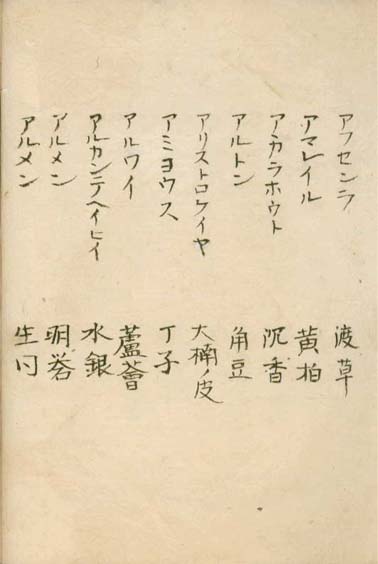 アフセンラ 渡草
アマレイル 黄柏
アカラホウト 沉香
アルトン 角豆
アリストロケイヤ 大楠ノ皮
アミヨウス 丁子
アルワイ 蘆薈
アルカンテヘイヒイ 水銀
アルメン 明礬
アルメン 生同